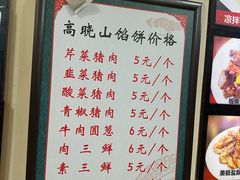 高晓山馅饼价格
芹菜猪肉 5元/个
韭菜猪肉 5元/个
酸菜猪肉 5元/个
青椒猪肉 5元/个
牛肉圆葱 6元/个
肉三鲜 6元/个
素三鲜 5元/个
凉拌